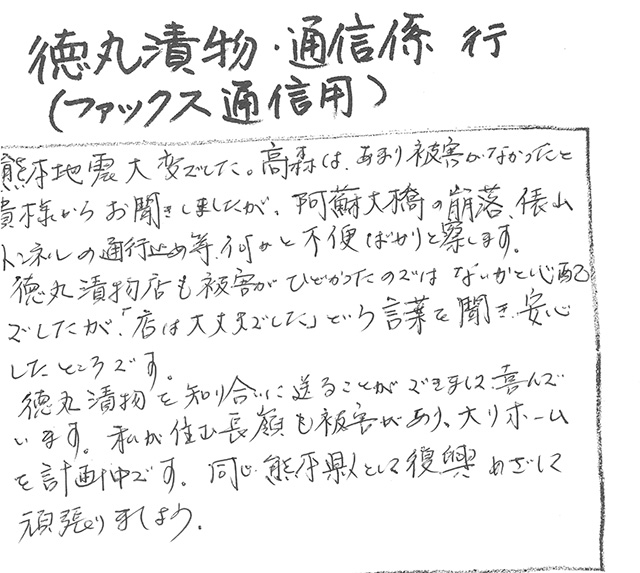 徳丸漬物・通信係 行
(ファックス通信用)
熊本地震大変でした。高森は、あまり被害がなかったと
貴様からお聞きしましたが、阿蘇大橋の崩落、俵山
トンネルの通行止め等、何かと不便ばかりと察します。
徳丸漬物店も被害がひどかったのではないかと心配
でしたが、「店は大丈夫でした」という言葉を聞き、安心
したところです。
徳丸漬物を知り合いに送ることができまして喜んで
います。私が住む長嶺も被害があり、大リホーム
を計画中です。同じ熊本県人として復興めざして
頑張りましょう。